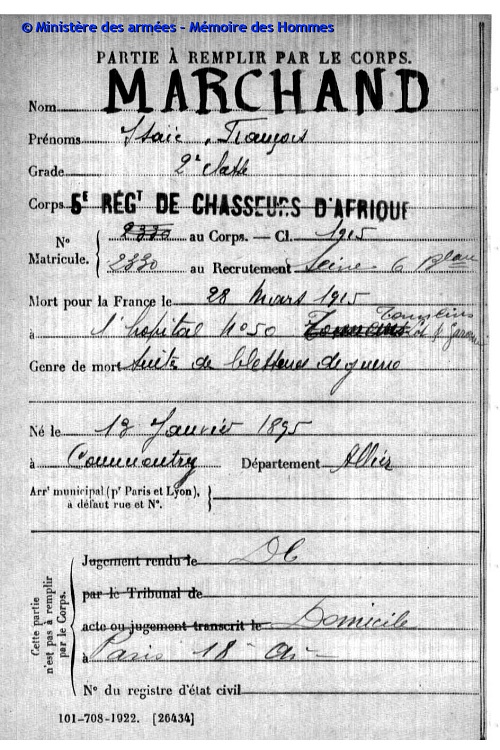 © Ministère des armées - Mémoire des Hommes
PARTIE À REMPLIR PAR LE CORPS.
Nom MARCHAND
Prénoms Isaïe, François
Grade 2e classe
Corps 5E RÉGT DE CHASSEURS D'AFRIQUE
N° 2330 au Corps. — Cl. 1915
Matricule. 2330 au Recrutement Seine 6 Bau
Mort pour la France le 28 Mars 1915
à l'hopital N°50
Genre de mort suite de blessures de guerre
Né le 13 Janvier 1895
à Commentry Département Allier
Arrt municipal (pr Paris et Lyon),
à défaut rue et N°.
Cette partie
n'est pas à remplir
par le Corps.
Jugement rendu le DC
par le Tribunal de
acte ou jugement transcrit le Domicile
à Paris 18e
N° du registre d'état civil
101-708-1922. [26434]